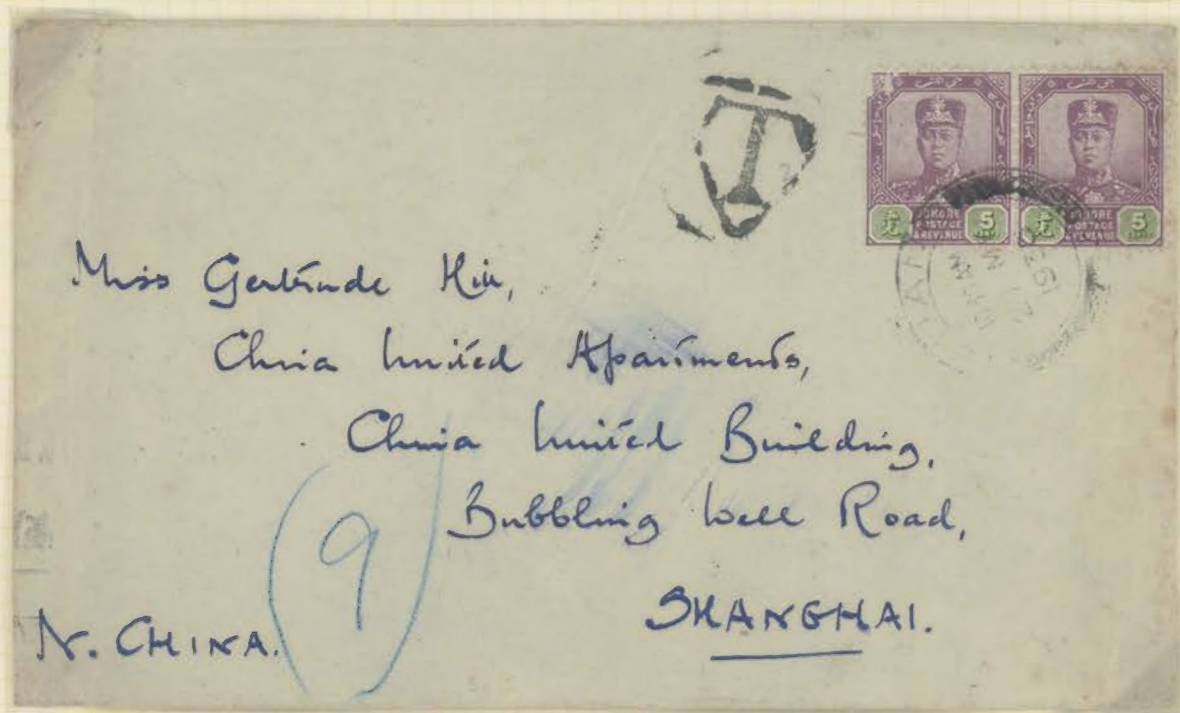 T
JOHORE
POSTAGE
& REVENUE
5
JOHORE
POSTAGE
& REVENUE
5
Miss Gertrude
China United Apartments,
China United Building,
Bubbling Well Road,
SHANGHAI.
N. CHINA.
9